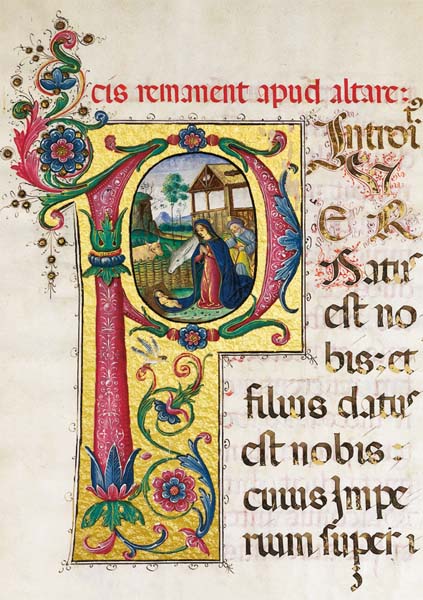 cis remanent apud altare:
Introit
P V
E R
Natus
est no
bis: et
filius datus
est nobis:
cuius Impe
rium super i